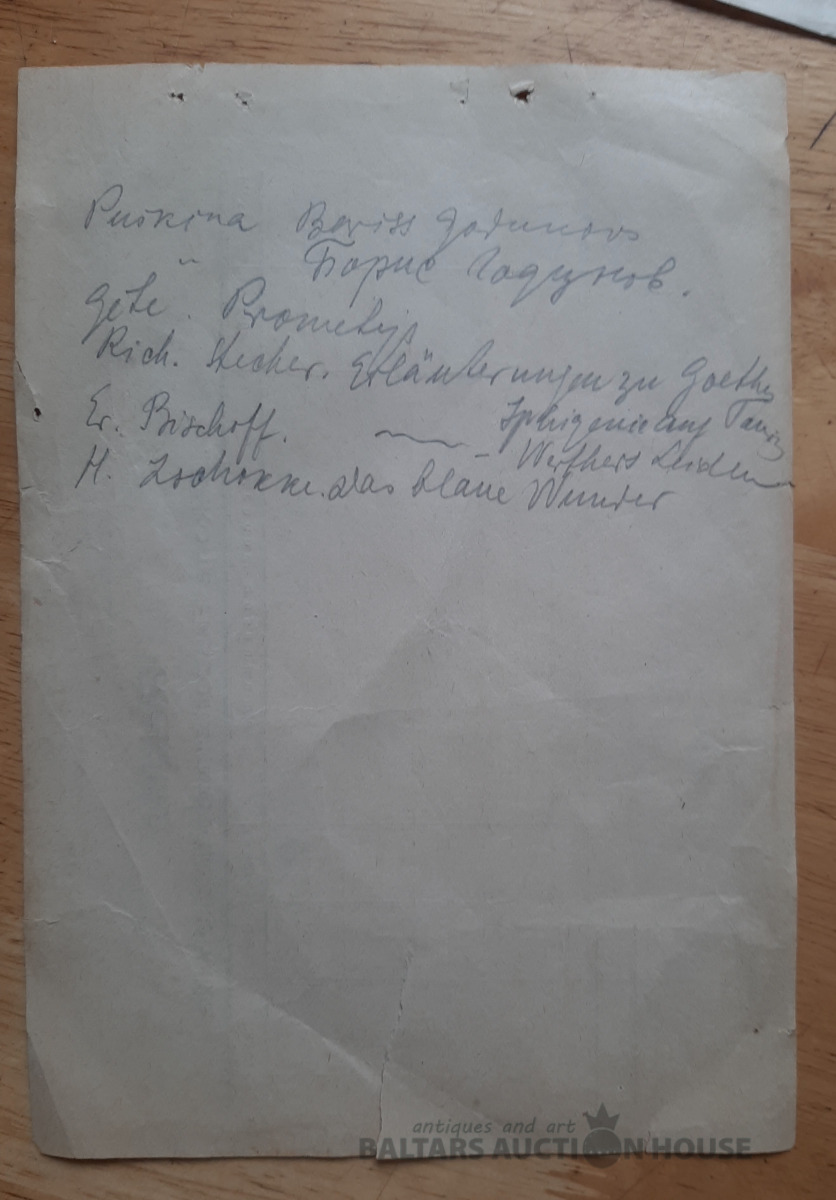 Puškina Boriss Godunovs
" Борис Годунов.
Gete. Prometejs
Rich. Stecher. Erläuterungen zu Goethes
Iphigenie auf Tauris
Er. Bischoff. —〃— Werthers Leiden
H. Zschokke. Das blaue Wunder
antiques and art
BALTARS AUCTION HOUSE